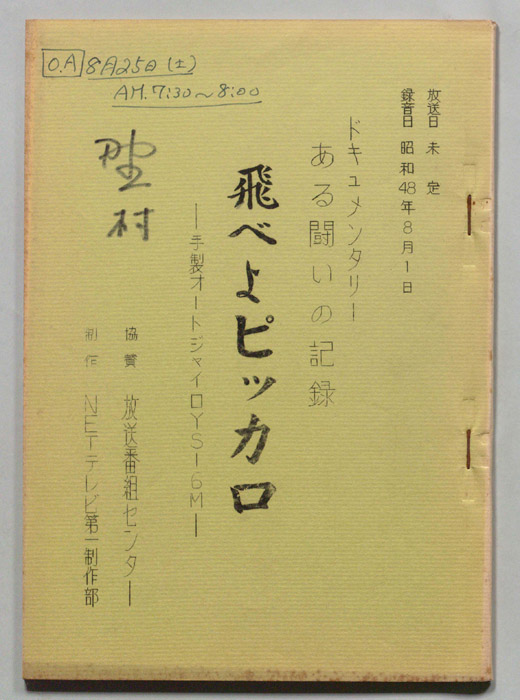 O.A 8月25日(土)
AM.7:30～8:00
放送日 未定
録音日 昭和48年8月1日
ドキュメンタリー
ある闘いの記録
飛べよピッカロ
—手製オートジャイロYS-16M—
野村
協賛 放送番組センター
制作 NETテレビ第一制作部